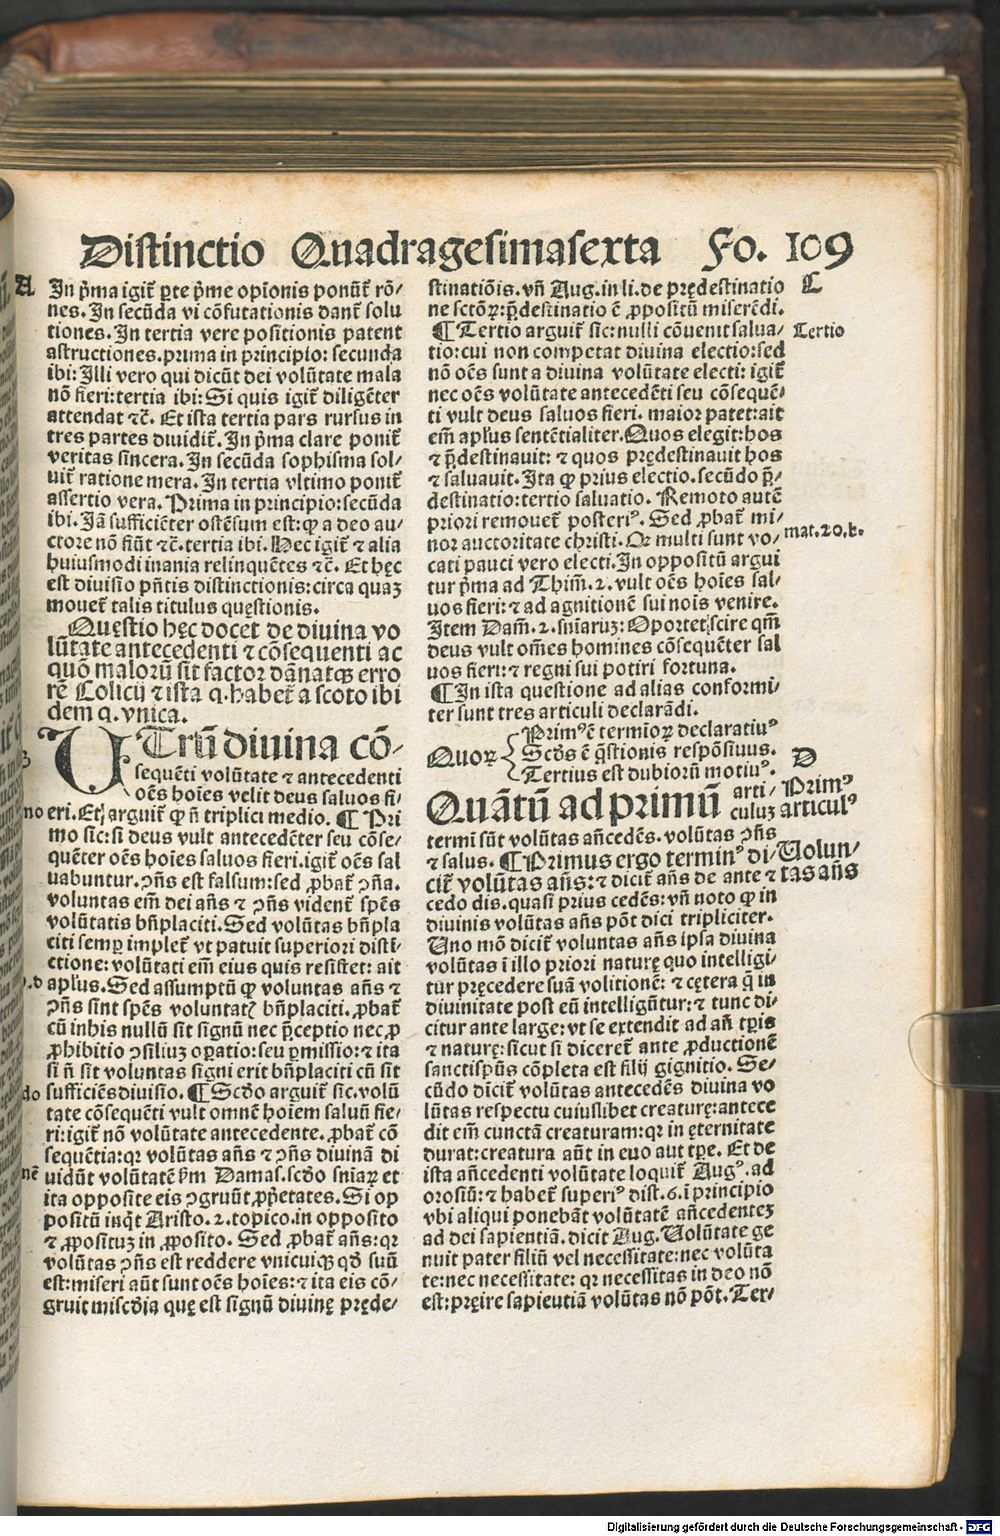 Distinctio Quadragesimasexta Fo. 109
A
In p̄ma igit᷑ ꝑte p̄me opīonis ponūt᷑ rō⸗
nes. In secūda vi cōfutationis dant᷑ solu
tiones. In tertia vere positionis patent
astructiones. prima in principio: secunda
ibi: Illi vero qui dicūt dei volūtate mala
nō fieri: tertia ibi: Si quis igit᷑ diligēter
attendat ⁊c̄. Et ista tertia pars rursus in
tres partes diuidit᷑. In p̄ma clare ponit᷑
veritas sincera. In secūda sophisma sol⸗
uit᷑ ratione mera. In tertia vltimo ponit᷑
assertio vera. Prima in principio: secūda
ibi. Iā sufficiēter ostēsum est: ꝙ a deo au⸗
ctore nō fiūt ⁊c̄. tertia ibi. Hec igit᷑ ⁊ alia
huiusmodi inania relinquētes ⁊c̄. Et hęc
est diuisio p̄ntis distinctionis: circa quaꝫ
mouet᷑ talis titulus quęstionis.
Quęstio hęc docet de diuina vo
lūtate antecedenti ⁊ cōsequenti ac
quō malorū sit factor dānatqꝫ erro
rē Colicij ⁊ ista q. habet᷑ a scoto ibi
dem q. vnica.
UTrū diuina cō⸗
sequēti volūtate ⁊ antecedenti
oēs hoīes velit deus saluos fi⸗
eri. Et arguit᷑ ꝙ n̄ triplici medio. ¶ Pri
mo sic: si deus vult antecedēter seu cōse⸗
quēter oēs hoīes saluos fieri. igit᷑ oēs sal
uabuntur. ꝯn̄s est falsum: sed ꝓbat᷑ ꝯn̄a.
voluntas em̄ dei an̄s ⁊ ꝯn̄s vident᷑ spēs
volūtatis bn̄placiti. Sed volūtas bn̄pla
citi semꝑ implet᷑ vt patuit superiori disti⸗
ctione: volūtati em̄ eius quis resistet: ait
apl̄us. Sed assumptū ꝙ voluntas an̄s ⁊
ꝯn̄s sint spēs voluntatꝭ bn̄placiti. ꝓbat᷑
cū in his nullū sit signū nec p̄ceptio nec ꝓ
ꝓhibitio ꝯsiliuꝫ oꝑatio: seu ꝑmissio: ⁊ ita
si n̄ sit voluntas signi erit bn̄placiti cū sit
sufficiēs diuisio. ¶ Scd̄o arguit᷑ sic. volū
tate cōsequēti vult omnē hoīem saluū fie⸗
ri: igit᷑ nō voluntate antecedente. ꝓbat᷑ cō
sequētia: qꝛ voluntas an̄s ⁊ ꝯn̄s diuinā di
uidūt volūtatē ẜm Damas. scd̄o sn̄iaꝝ et
ita opposite eis ꝯgruūt ꝓp̄etates. Si op
positū inq̇t Aristo. 2. topico. in opposito
⁊ ꝓposituꝫ in ꝓposito. Sed ꝓbat᷑ an̄s: qꝛ
volūtas ꝯn̄s est reddere vnicuiqꝫ qd̄ suū
est: miseri aūt sunt oēs hoīes: ⁊ ita eis cō⸗
gruit misc̄dia quę est signū diuinę pręde⸗
stinatiōis. vn̄ Aug. in li. de prędestinatio
ne sctōꝝ: p̄destinatio ē ꝓpositū miserēdi.
¶ Tertio arguit᷑ sic: nulli cōuenit salua⸗
tio: cui non competat diuina electio: sed
nō oēs sunt a diuina volūtate electi: igit᷑
nec oēs voluntate antecedēti seu cōsequē⸗
ti vult deus saluos fieri. maior patet: ait
em̄ apl̄us sentētialiter. Quos elegit: hos
⁊ p̄destinauit: ⁊ quos prędestinauit hos
⁊ saluauit. Ita ꝙ prius electio. secūdo p̄⸗
destinatio: tertio saluatio. Remoto autē
priori remouet᷑ posteriꝰ. Sed ꝓbat᷑ mi⸗
nor auctoritate christi. Qꝛ multi sunt vo⸗
cati pauci vero electi. In oppositū argui
tur p̄ma ad Thim̄. 2. vult oēs hoīes sal⸗
uos fieri: ⁊ ad agnitionē sui nois venire.
Item Dam̄. 2. sn̄iaruꝫ: Oportet scire qm̄
deus vult om̄es homines cōsequēter sal
uos fieri: ⁊ regni sui potiri fortuna.
¶ In ista questione ad alias conformi⸗
ter sunt tres articuli declarādi.
Quoꝝ
Primꝰ ē termioꝝ declaratiuꝰ
Scd̄s ē q̄stionis respōsiuus.
Tertius est dubiorū motiuꝰ.
Quātū ad primū arti⸗
culuꝫ
termī sūt volūtas an̄cedēs. volūtas ꝯn̄s
⁊ salus. ¶ Primus ergo terminꝰ di⸗
cit᷑ volūtas an̄s: ⁊ dicit᷑ an̄s de ante ⁊
cedo dis. quasi prius cedēs: vn̄ noto ꝙ in
diuinis volūtas an̄s pōt dici tripliciter.
Uno mō dicit᷑ voluntas an̄s ipsa diuina
volūtas ī illo priori naturę quo intelligi⸗
tur pręcedere suā volitionē: ⁊ cętera q̄ in
diuinitate post eū intelligūtur: ⁊ tunc di⸗
citur ante large: vt se extendit ad an̄ tꝑis
⁊ naturę: sicut si diceret᷑ ante ꝓductionē
sanctispūs cōpleta est filij gignitio. Se⸗
cūdo dicit᷑ volūtas antecedēs diuina vo
lūtas respectu cuiuslibet creaturę: antece
dit em̄ cunctā creaturam: qꝛ in ęternitate
durat: creatura aūt in euo aut tꝑe. Et de
ista an̄cedenti volūtate loquit᷑ Augꝰ. ad
orosiū: ⁊ habet᷑ superiꝰ dist. 6. ī principio
vbi aliqui ponebāt volūtatē an̄cedenteꝫ
ad dei sapientiā. dicit Aug. Uolūtate ge
nuit pater filiū vel necessitate: nec volūta
te: nec necessitate: qꝛ necessitas in deo nō
est: pręire sapientiā volūtas nō pōt. Ter⸗
C
Tertio
mat. 20. b.
D
Primꝰ
articulꝰ
Uolun⸗
tas an̄s
Digitalisierung gefördert durch die Deutsche Forschungsgemeinschaft - DFG